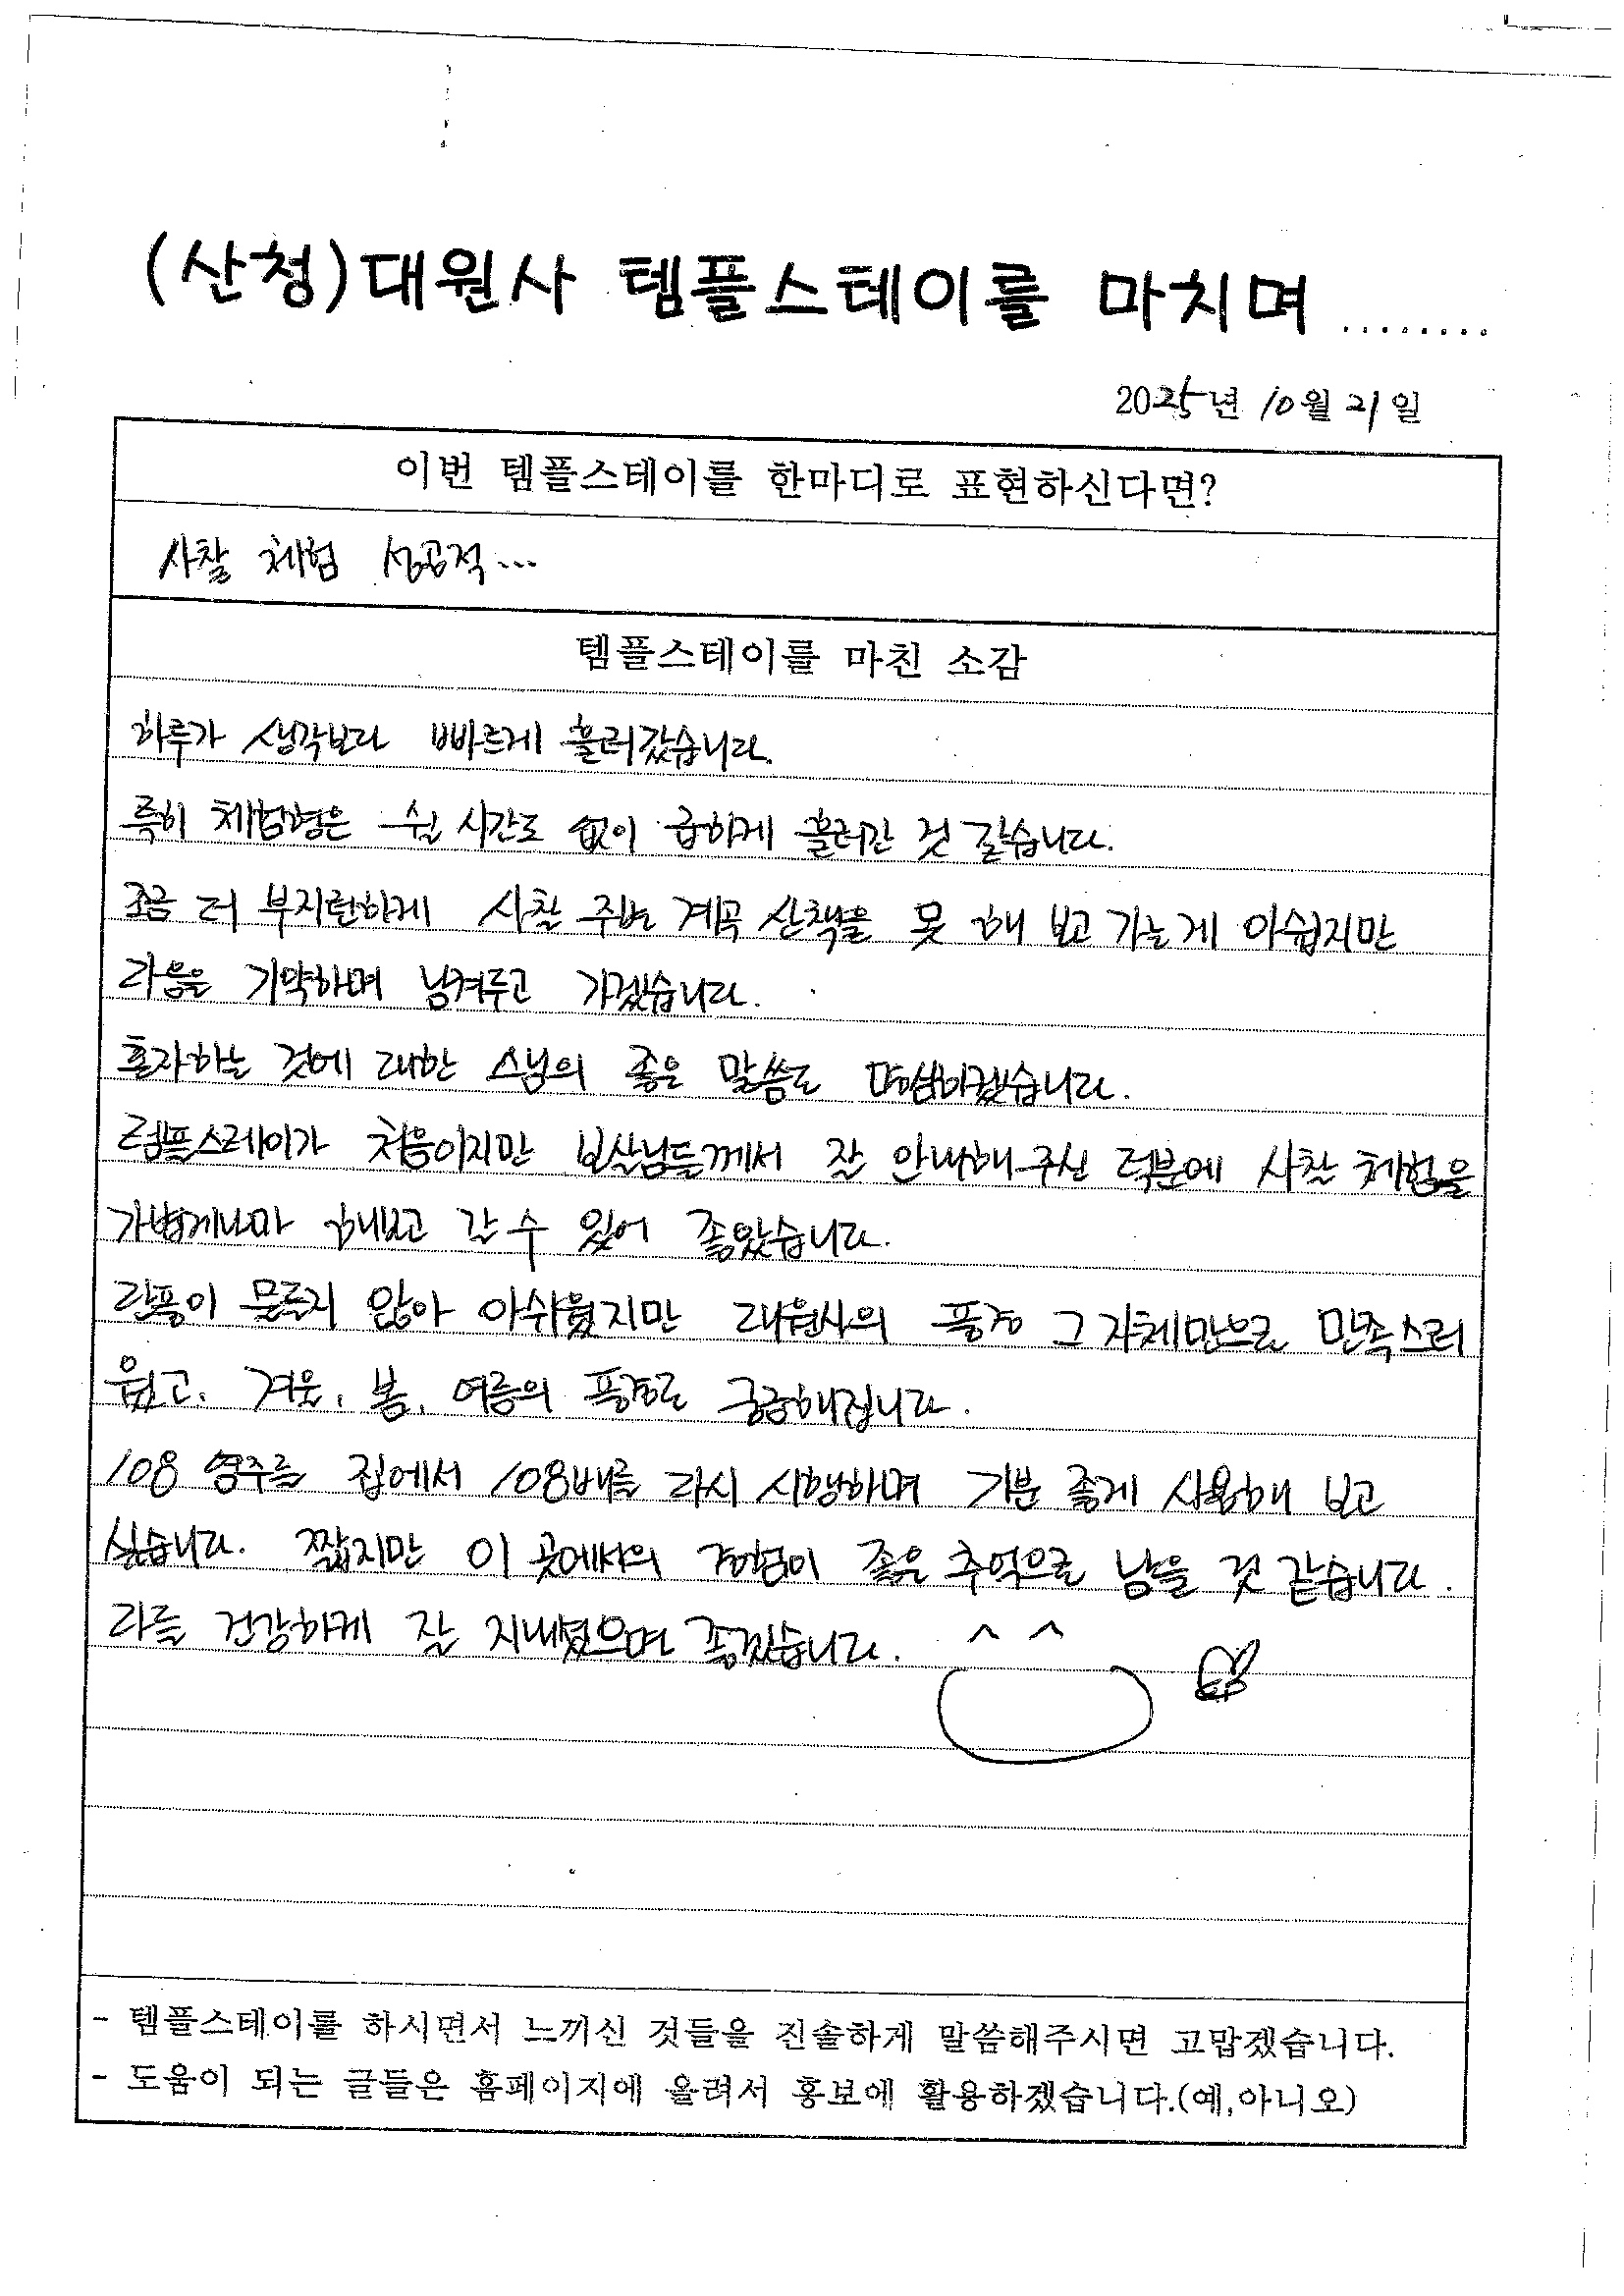 (산청)대원사 템플스테이를 마치며 ........
2025년 10월 21일
이번 템플스테이를 한마디로 표현하신다면?
사찰 체험 성공적...
템플스테이를 마친 소감
하루가 생각보다 빠르게 흘러갔습니다.
특히 체험형은 쉴 시간도 없이 급하게 흘러간 것 같습니다.
조금 더 부지런하게 사찰 주변 계곡 산책을 못 해 보고 가는게 아쉽지만
다음을 기약하며 남겨두고 가겠습니다.
혼자하는 것에 대한 스님의 좋은 말씀도 명심하겠습니다.
템플스테이가 처음이지만 보살님들께서 잘 안내해 주신 덕분에 사찰 체험을
가볍게나마 해보고 갈 수 있어 좋았습니다.
단풍이 물들지 않아 아쉬웠지만 대원사의 풍경 그 자체만으로 만족스러
웠고, 겨울, 봄, 여름의 풍경도 궁금해집니다.
108 염주를 집에서 108배를 다시 시행하며 기분 좋게 사용해 보고
싶습니다. 짧지만 이 곳에서의 경험이 좋은 추억으로 남을 것 같습니다.
다들 건강하게 잘 지내셨으면 좋겠습니다. ^ ^
- 템플스테이를 하시면서 느끼신 것들을 진솔하게 말씀해주시면 고맙겠습니다.
- 도움이 되는 글들은 홈페이지에 올려서 홍보에 활용하겠습니다.(예,아니오)